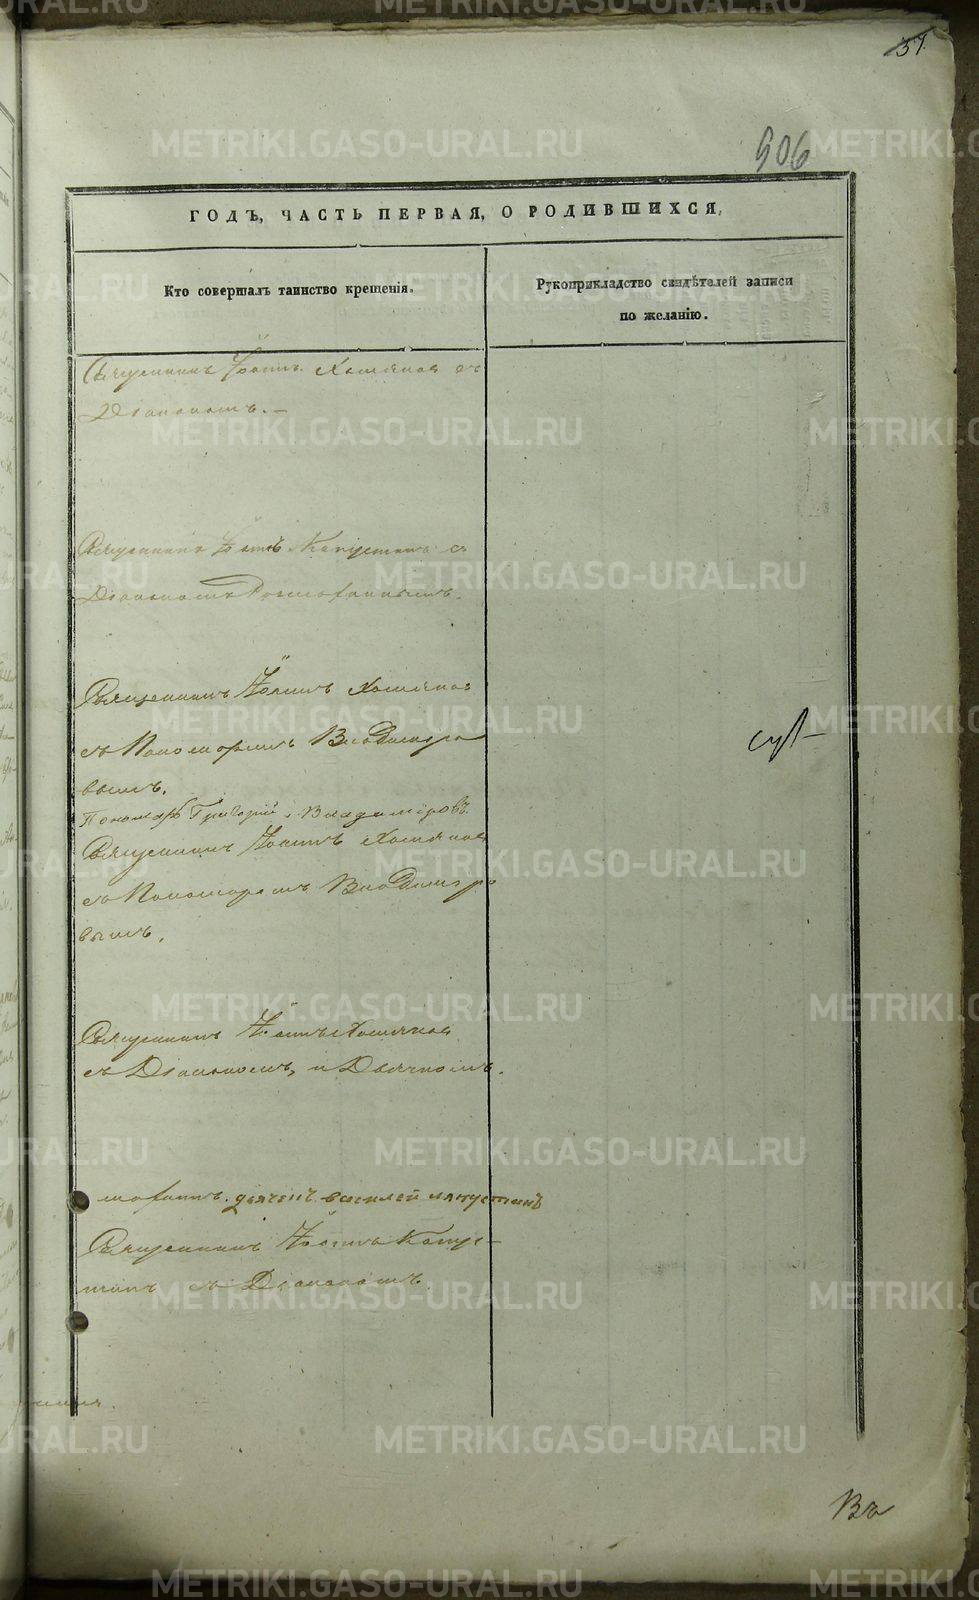 37.
906
ГОДЪ, ЧАСТЬ ПЕРВАЯ, О РОДИВШИХСЯ,
Кто совершалъ таинство крещенія.
Рукоприкладство свидѣтелей записи
по желанію.
Священникъ Іоаннъ Хомяков съ
Діакономъ.
Священникъ Іоаннъ Капустинъ съ
Діакономъ
Священникъ Іоаннъ Хомяков
съ Пономаремъ Владимиро
вымъ.
Пономарь Григорій Владиміровъ
Священникъ Іоаннъ Хомяков
съ Пономаремъ Владимиро
вымъ.
Священникъ Іоаннъ Хомяков
съ Діакономъ, и Дьячкомъ.
дьячекъ василей капустинъ
Священникъ Іоаннъ Капус-
тинъ съ Діакономъ.
Въ
METRIKI.GASO-URAL.RU